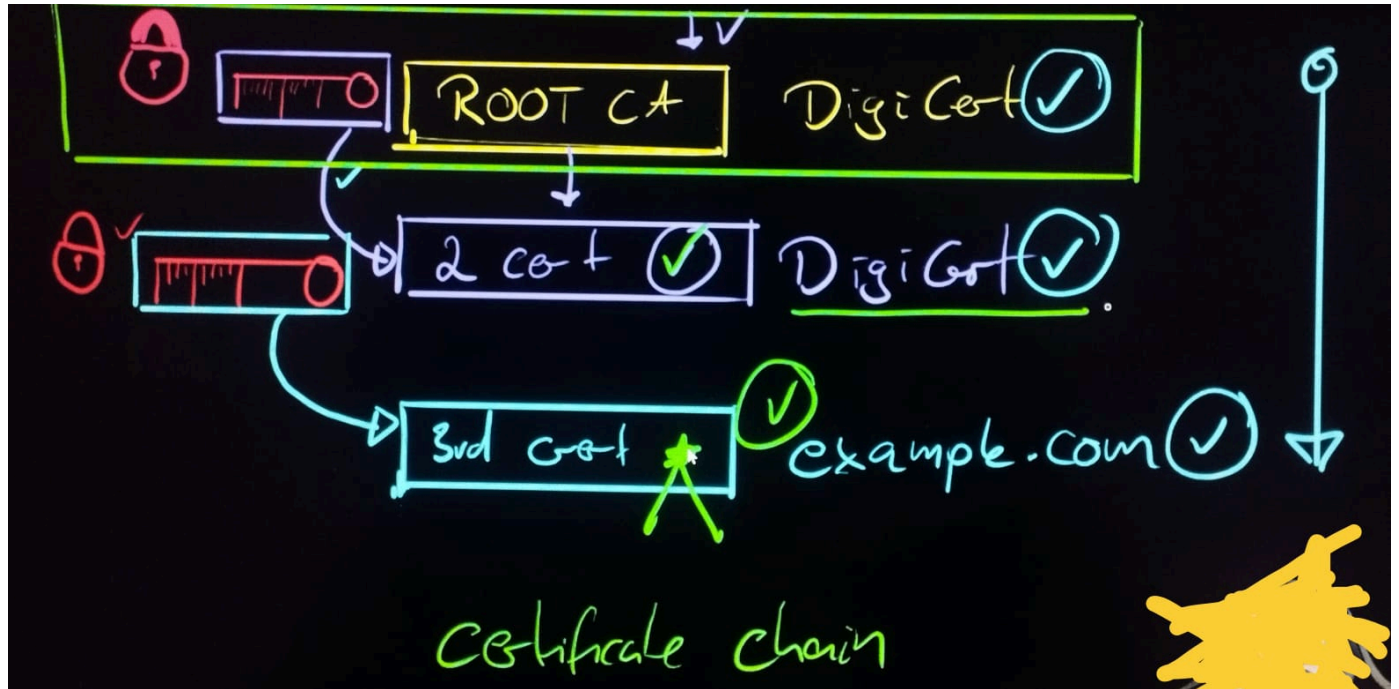 ROOT CA DigiCert
2 cert DigiCert
3rd cert example.com
Certificate chain